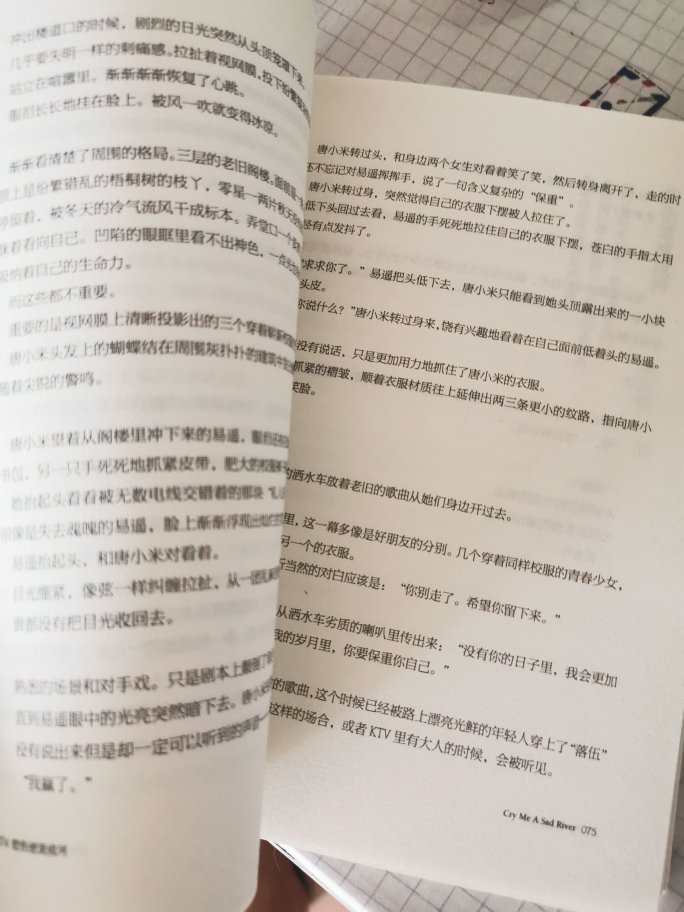 冲出楼道口的时候，剧烈的日光突然从头顶笼罩下来。
几乎要失明一样的刺痛感。拉扯着视网膜，投下纷繁
站立在喧嚣里，渐渐渐渐恢复了心跳。
眼泪长长地挂在脸上。被风一吹就变得冰凉。
渐渐看清楚了周围的格局。三层的老旧阁楼。面前是
顶上是纷繁错乱的梧桐树的枝丫，零星一两片秋天
停留着，被冬天的冷气流风干成标本。弄堂口一个
眯着看向自己。凹陷的眼眶里看不出神色，一
吸纳着自己的生命力。
而这些都不重要。
重要的是视网膜上清晰投影出的三个穿着
唐小米头发上的蝴蝶结在周围灰扑扑的建筑中
随着尖锐的警鸣。
唐小米望着从阁楼里冲下来的易遥，
书包，另一只手死死地抓紧皮带，肥大的校服
她抬起头看看被无数电线交错着的那块
前像是失去魂魄的易遥，脸上渐渐浮现出
易遥抬起头，和唐小米对看着。
目光绷紧，像弦一样纠缠拉扯，从一团乱
谁都没有把目光收回去。
熟悉的场景和对手戏。只是剧本上
直到易遥眼中的光亮突然暗下去。唐小
没有说出来但是却一定可以听到的声音
“我赢了。”
悲伤逆流成河
唐小米转过头，和身边两个女生对看着笑了笑，然后转身离开了，走的时
还不忘记对易遥挥挥手，说了一句含义复杂的“保重”。
唐小米转过身，突然觉得自己的衣服下摆被人拉住了。
低下头回过去看，易遥的手死死地拉住自己的衣服下摆，苍白的手指太用
经有点发抖了。
“求求你了。”易遥把头低下去，唐小米只能看到她头顶露出来的一小块
头皮。
你说什么？”唐小米转过身来，饶有兴趣地看着在自己面前低着头的易遥。
没有说话，只是更加用力地抓住了唐小米的衣服。
抓紧的褶皱，顺着衣服材质往上延伸出两三条更小的纹路，指向唐小
笑脸。
的洒水车放着老旧的歌曲从她们身边开过去。
里，这一幕多像是好朋友的分别。几个穿着同样校服的青春少女，
另一个的衣服。
所当然的对白应该是：“你别走了。希望你留下来。”
从洒水车劣质的喇叭里传出来：“没有你的日子里，我会更加
我的岁月里，你要保重你自己。”
的歌曲，这个时候已经被路上漂亮光鲜的年轻人穿上了“落伍”
这样的场合，或者 KTV 里有大人的时候，会被听见。
Cry Me A Sad River 075